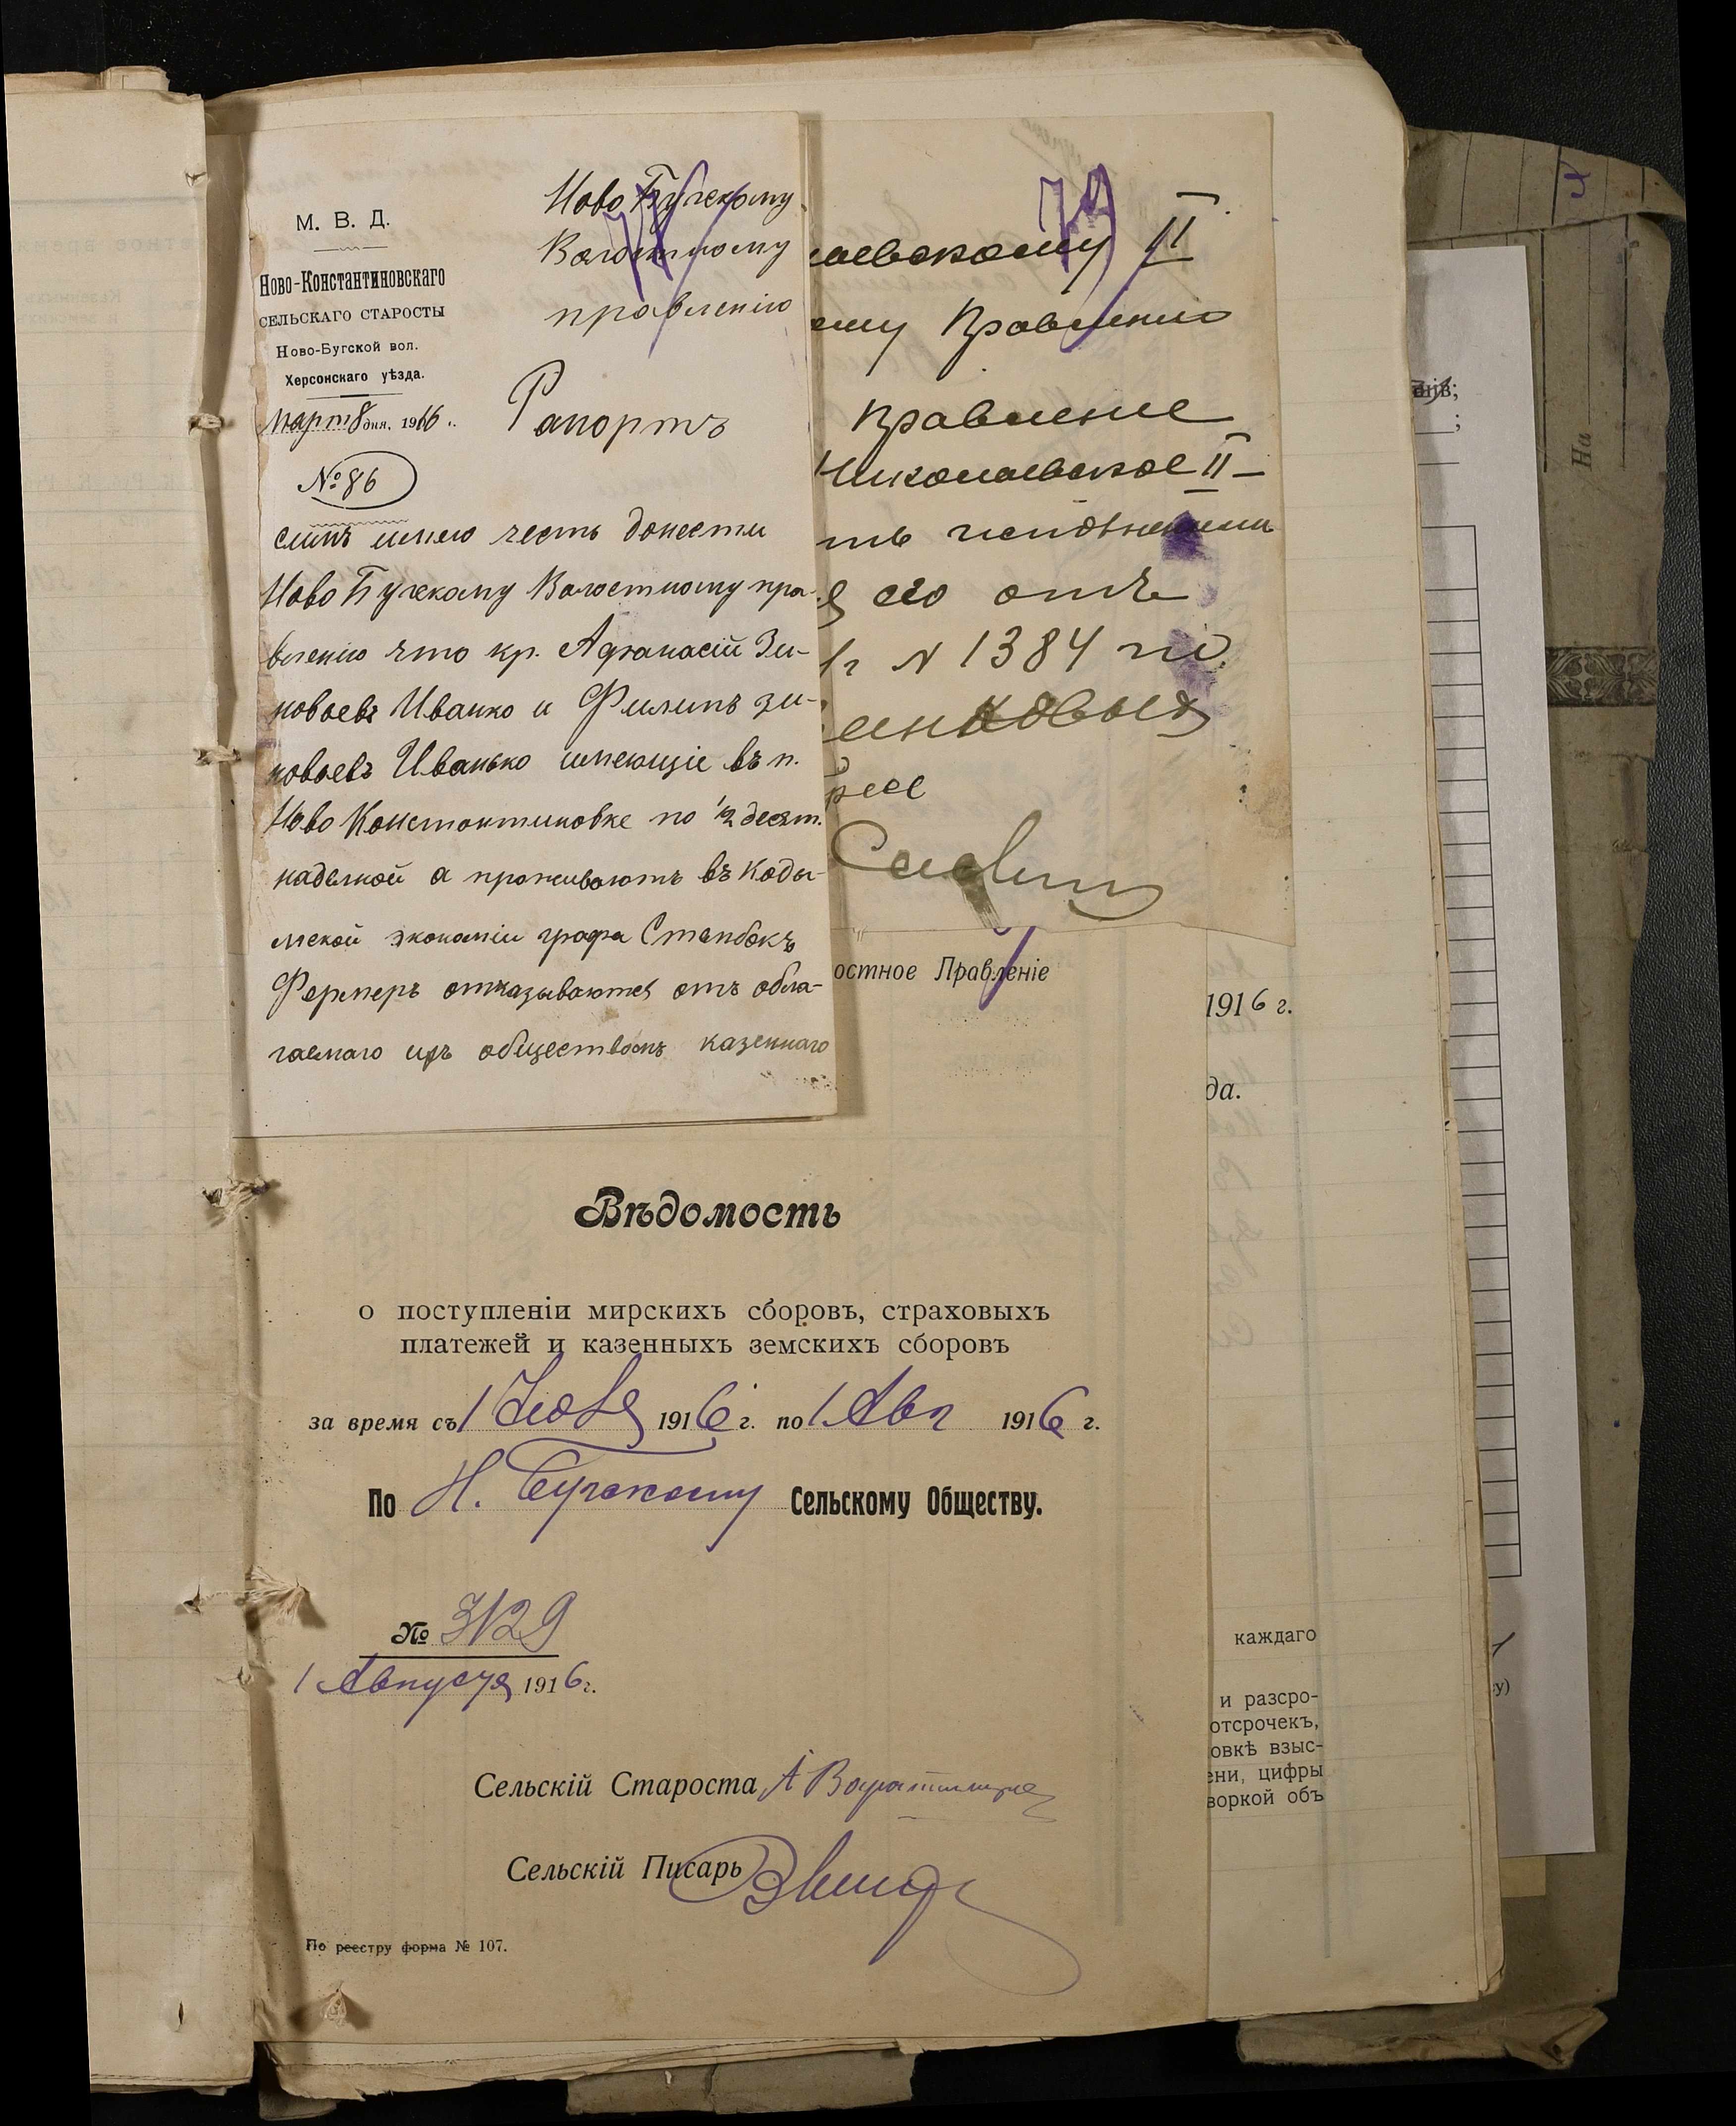 М. В. Д.
Ново-Константиновскаго
СЕЛЬСКАГО СТАРОСТЫ
Ново-Бугской вол.
Херсонскаго уѣзда.
Март 8 дня, 1916
№ 86
Ново Бугскому
Волостному
правленію
Рапортъ
симъ имею честь донести
Ново Бугскому Волостному пра-
вленію что кр. Афанасій Зи-
новьевъ Иванко и Филипъ Зи-
новьевъ Иванько имеющіе въ п.
Ново Константиновке по 1/2 десят.
надельной а проживаютъ въ Коды-
мской экономіи графа Стенбокъ
Ферперъ отказываются отъ обла-
гаемаго ихъ обществомъ казеннаго
79
лаевскому II
ому Правленію
Правленіе
Николаевское II-
его отъ
N 1384 по
остное Правленіе
1916 г.
да.
Вѣдомость
о поступленіи мирскихъ сборовъ, страховыхъ
платежей и казенныхъ земскихъ сборовъ
за время съ 1 Июля 1916 г. по 1 Авг 1916 г.
По Н. Бугскому Сельскому Обществу.
№ 3129
1 Августа 1916 г.
Сельскій Староста
Сельскій Писарь
По реестру форма № 107.
каждаго
и разсро-
отсрочекъ,
овкѣ взыс-
ени, цифры
воркой объ
На